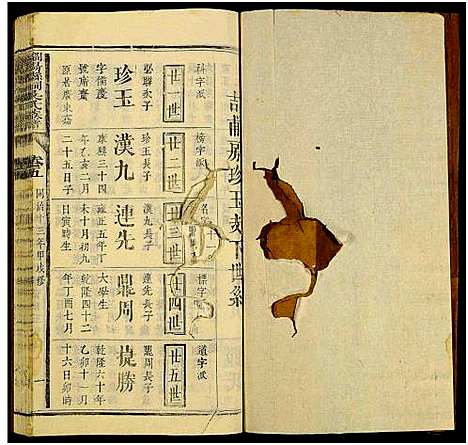 喆甫房珍玉支下世系
廿一世
科字派
珍玉
字儒慶
號席齋
廿二世
榜字派
漢九
珍玉長子
康熙三十四
年乙亥二月
二十五日子
廿三世
連先
漢九長子
雍正五年丁
未十月初九
日寅時生
廿四世
標字派
鼎周
連先長子
大學生
乾隆四十二
年丁酉七月
廿五世
道字派
提勝
鼎周長子
乾隆六十年
乙卯十一月
十六日卯時
卷五
同治十三年甲戌修
一